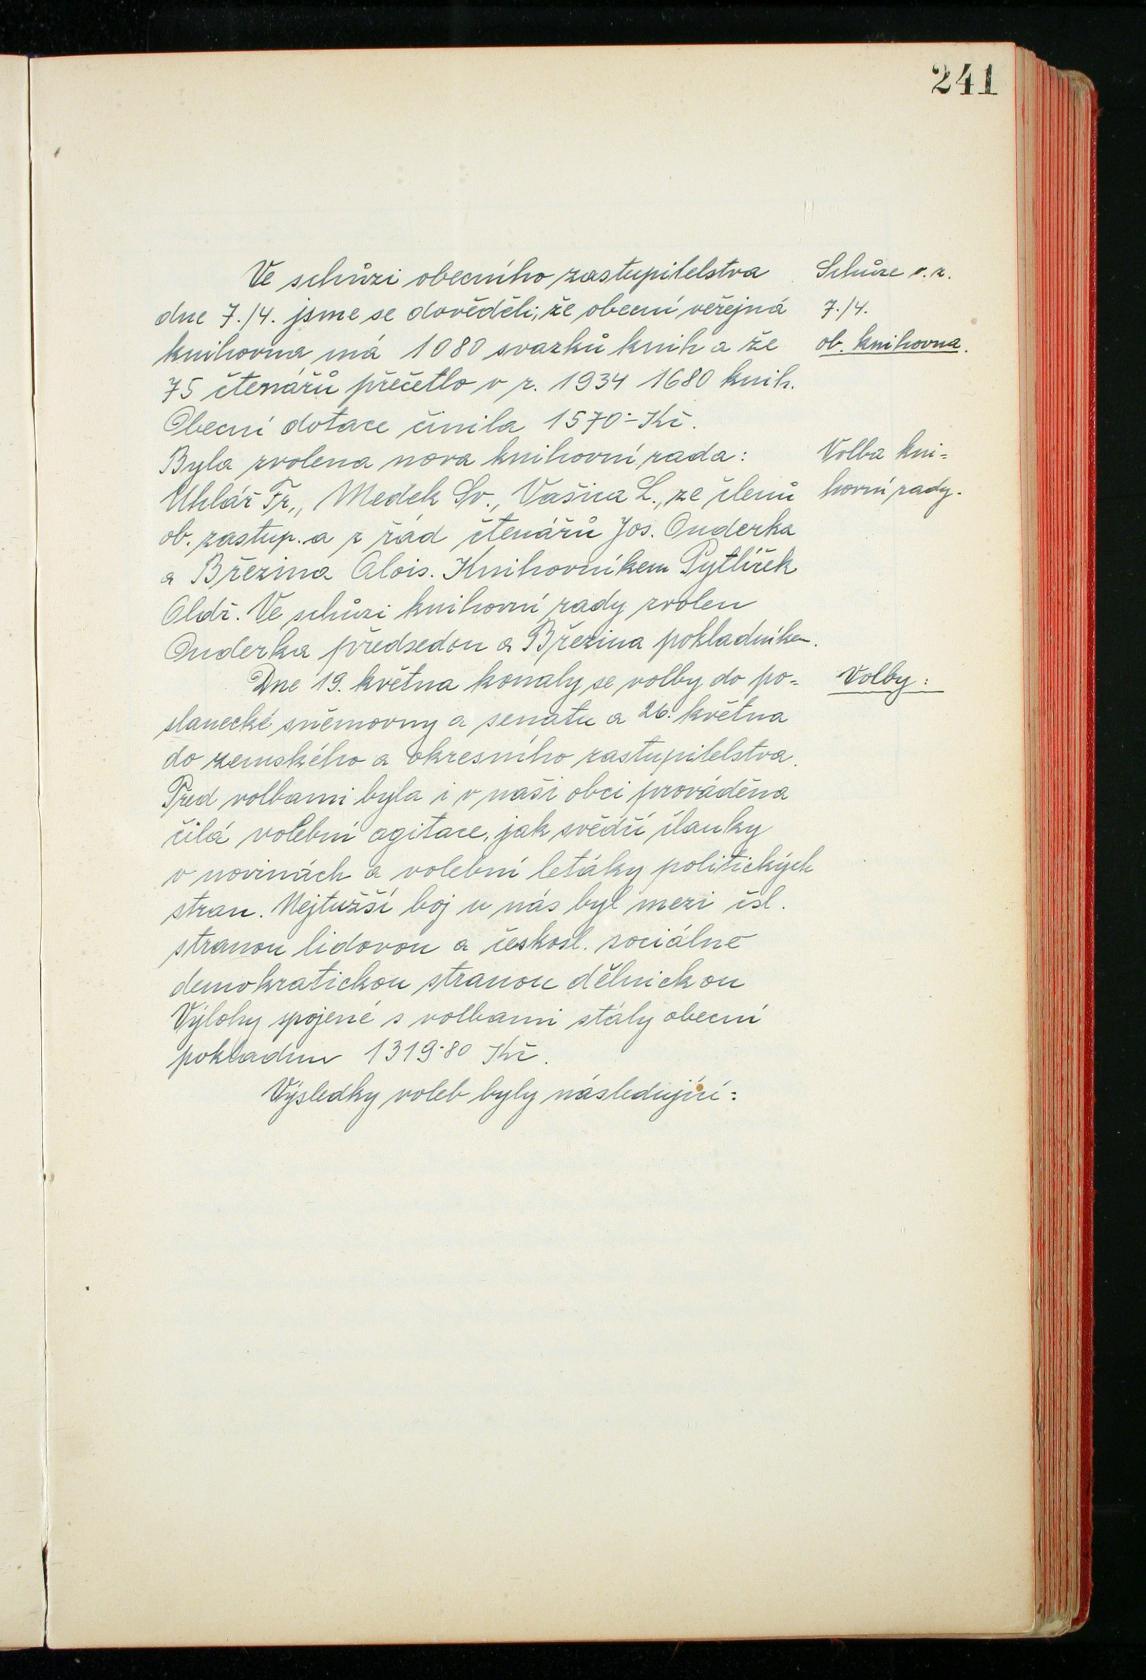 241
Ve schůzi obecního zastupitelstva
dne 7./4. jsme se dověděli, že obecní veřejná
knihovna má 1080 svazků knih a že
75 čtenářů přečetlo v r. 1934 1680 knih.
Obecní dotace činila 1570·- Kč.
Byla zvolena nova knihovní rada:
Uhlář Fr., Medek Sv., Vašica L., ze členů
ob. zastup. a z řád čtenářů Jos. Onderka
a Březina Alois. Knihovníkem Pytlíček
Oldř. Ve schůzi knihovní rady zvolen
Onderka předsedou a Březina pokladníkem.
Dne 19. května konaly se volby do po=
slanecké sněmovny a senátu a 26. května
do zemského a okresního zastupitelstva.
Před volbami byla i v naši obci prováděna
čilá volební agitace, jak svědčí články
v novinách a volební letáky politických
stran. Nejtužší boj u nás byl mezi čsl.
stranou lidovou a českosl. sociálně
demokratickou stranou dělnickou
Výlohy spojené s volbami stály obecní
pokladnu 1319·80 Kč.
Výsledky voleb byly následující:
Schůze o. z.
7./4.
ob. knihovna.
Volba kni=
hovní rady.
Volby: